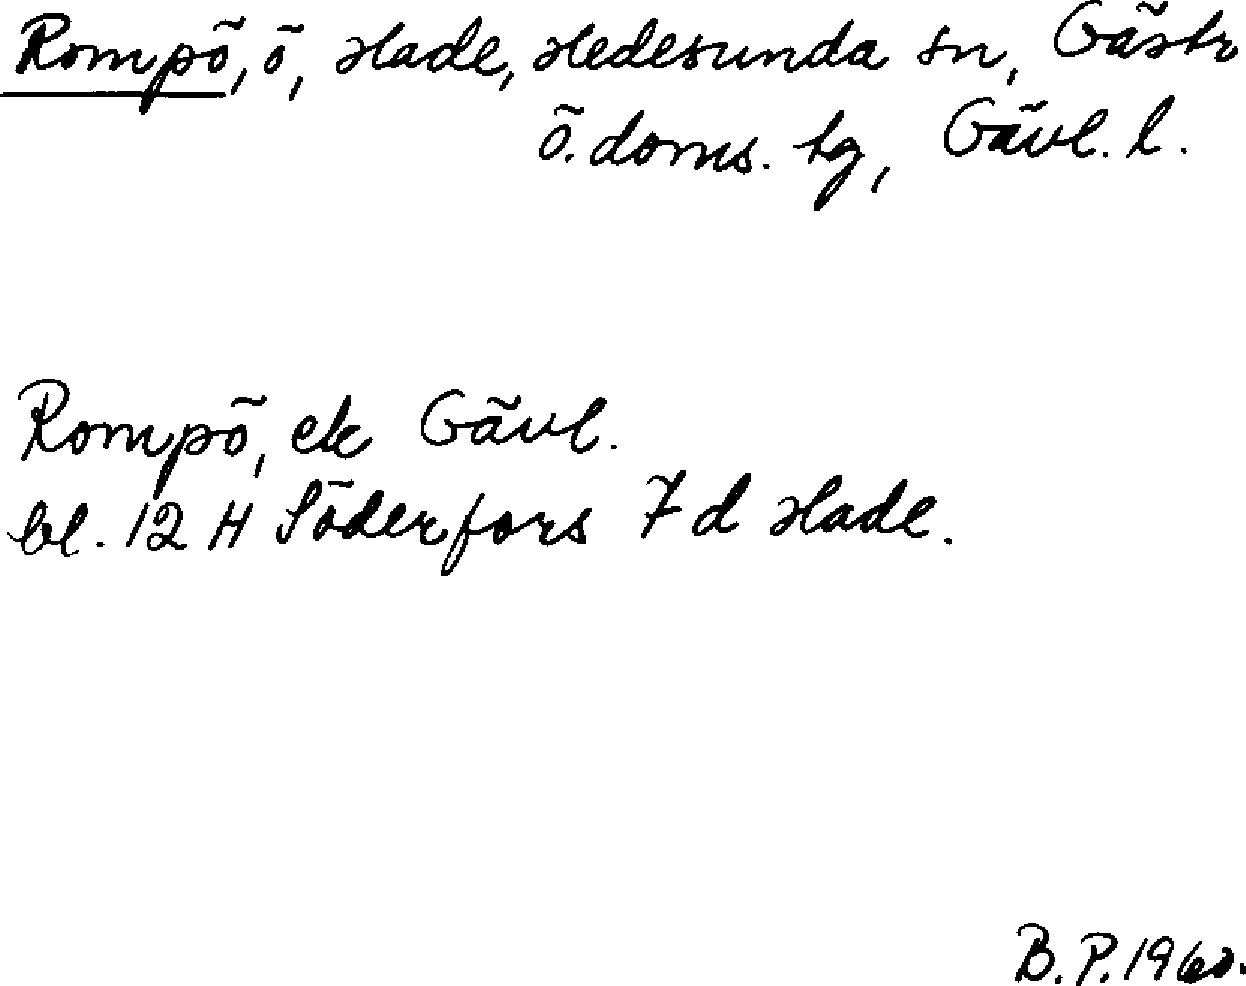 Rompö, ö, Hade, Hedesunda sn, Gästr
ö. doms. tg, Gävl. l.
Rompö, ek Gävl.
bl. 12 H Söderfors 7 d Hade.
B. P. 1960.